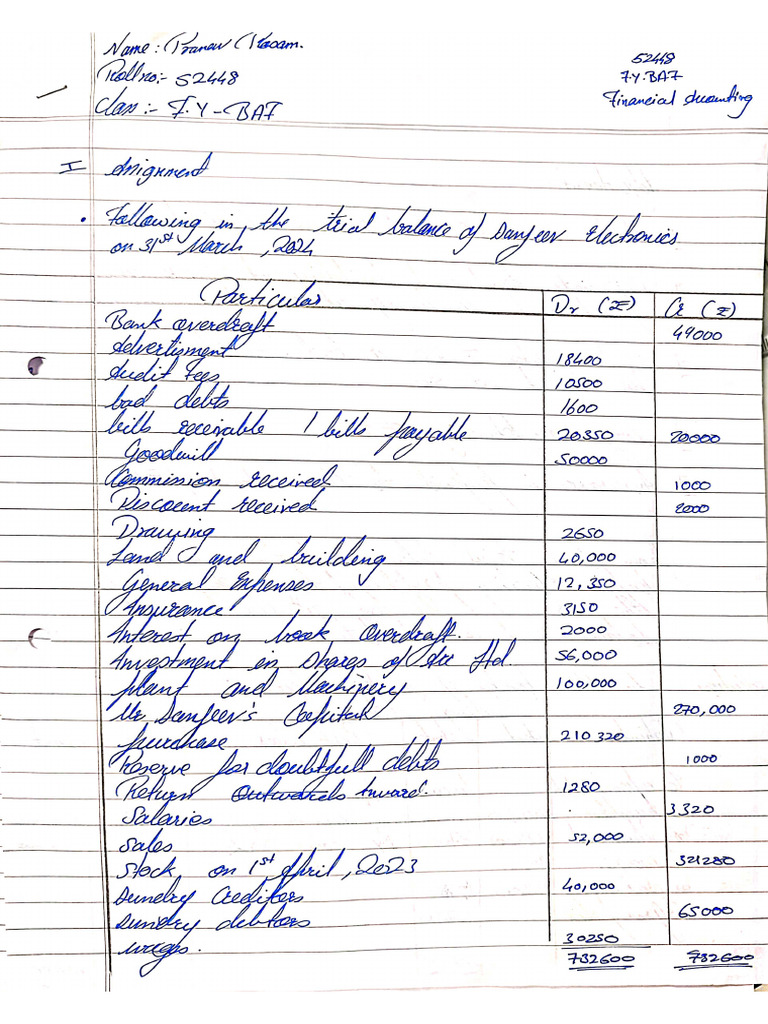 Name: Pranav Kadam.
Roll no:- 52448
Class:- F.Y-BAF
52448
F.Y.BAF
Financial Accounting
I Assignment
• Following in the trial balance of Sanjeev Electronics
on 31st March, 2024
Particular Dr (₹) Cr (₹)
Bank overdraft 49000
Advertisment 18400
Audit Fees 10500
bad debts 1600
bills receivable / bills payable 20350 20000
Goodwill 50000
Commission received 1000
Discount received 2000
Drawing 2650
Land and building 40,000
General Expenses 12,350
Insurance 3150
Interest on book overdraft. 2000
Investment in shares of Ltd. 56,000
plant and Machinery 100,000
Mr Sanjeev's Capital 270,000
purchase 210320
Reserve for doubtfull debts 1000
Return Outwards Inward. 1280
Salaries 3320
Sales 52,000
Stock on 1st April, 2023 321280
Sundry Creditors 40,000
Sundry debtors 65000
wages. 30250
732600 732600